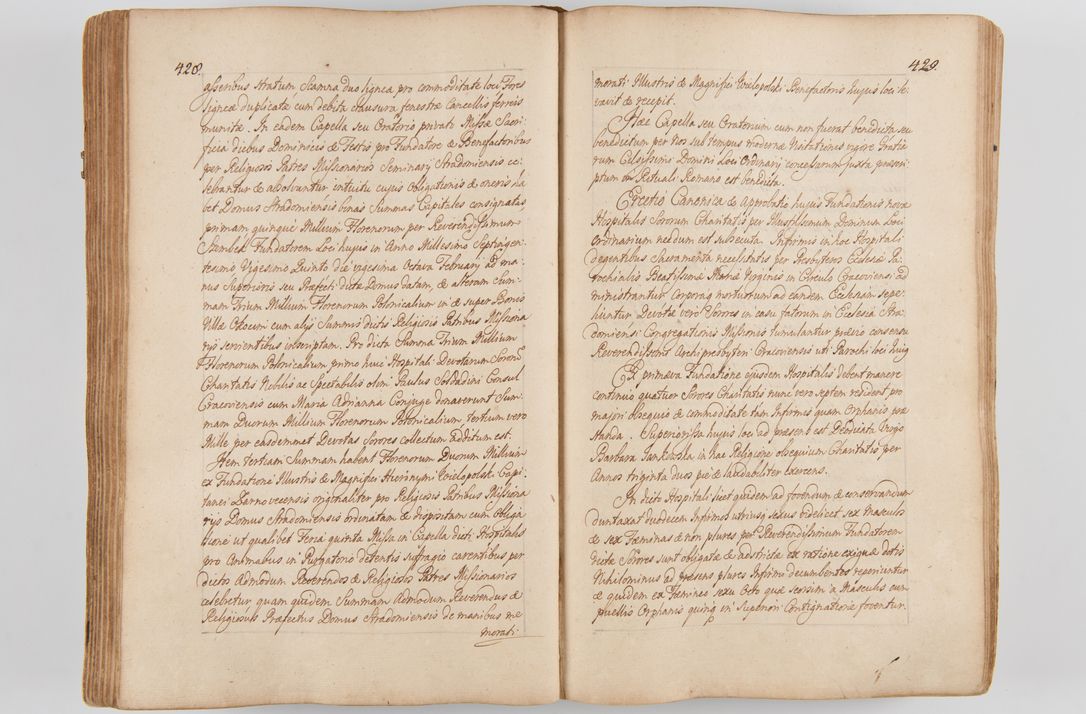 428.
asseribus stratum Scamna duo lignea, pro commoditate loci Fores
ligneæ duplicatæ cum debita clausura, fenestræ Cancellis ferreis
munitæ. In eadem Capella seu Oratorio privati Missæ Sacri-
ficia diebus Dominicis & Festis pro Fundatore & Benefactoribus
per Religiosos Patres Missionarios Seminarij Stradomiensis ce-
lebrantur & absolvuntur intuitu cujus Obligationis & oneris ha-
bet Domus Stradomiensis binas Summas Capitales consignatas
primam quinque Millium Florenorum per Reverendissimum
Szembek Fundatorem Loci hujus in Anno Millesimo Septingen-
tesimo, Vigesimo Quinto die vigesima Octava Februarij ad ma-
nus Superioris seu Præfecti dictæ Domus datam, & alteram Sum-
mam Trium Millium Florenorum Polonicalium in & super Bonis
Villæ cum alijs Summis dictis Religiosis Patribus Missiona-
rijs servientibus inscriptam. Pro dicta Summa Trium Millium
Florenorum Polonicalium primo huic Hospitali Devotarum Sororum
Charitatis Nobilis ac Spectabilis olim Paulus Soldadini Consul
Cracoviensis cum Maria Adrianna Conjuge donaverunt Sum-
mam Duorum Millium Florenorum Polonicalium, tertium vero
Mille per easdemmet Devotas Sorores collectum additum est.
Item tertiam Summam habent Florenorum Duorum Millium
ex Fundatione Illustris & Magnifici Hieronymi Wielopolski Capi-
tanei Zarnovecensis originaliter pro Religiosis Patribus Missiona-
rijs Domus Stradomiensis ordinatam & dispositam cum Obliga-
tione ut qualibet Feria quinta Missa in Capella dicti Hospitalis
pro Animabus in Purgatorio detentis suffragio carentibus per
dictos Admodum Reverendos & Religiosos Patres Missionarios
celebretur quam quidem Summam Admodum Reverendus &
Religiosus Præfectus Domus Stradomiensis de manibus me
morati
429.
morati Illustris & Magnifici Wielopolski Benefactoris hujus loci le-
vavit & recepit.
Hæc Capella seu Oratorium cum non fuerat benedicta seu
benedictum per Nos sub tempus modernæ Visitationis vigore Gratia-
rum Celsissimi Domini Loci Ordinarij concessarum juxta præscri-
ptum in Rituali Romano est benedicta.
Erectio Canonica & approbatio hujus Fundationis novæ
Hospitalis Sororum Charitatis per Illustrissimum Dominum Loci
Ordinarium necdum est subsecuta. Infirmis in hoc Hospitali
degentibus Sacramenta necessitatis per Presbyteros Ecclesiæ Pa-
rochialis Beatissimæ Mariæ Virginis in Circulo Cracoviensi ad
ministrantur Corporaq mortuorum ad eandem Ecclesiam sepe-
liuntur Devotæ vero Sorores in casu fatorum in Ecclesia Stra-
domiensi Congregationis Missionis tumulantur prævio consensu
Reverendissimi Archipresbyteri Cracoviensis uti Parochi loci hujus
Ex primæva Fundatione ejusdem Hospitalis debent manere
continuo quatuor Sorores Charitatis nunc vero septem resident pro
majori obsequio & commoditate tam Infirmis quam Orphanis præ-
standa. Superiorissa hujus loci ad præsens est Deodicata Virgo
Barbara Jankowska in hac Religione obsequium Charitatis per
Annos triginta duos pie & laudabiliter exercens.
In dicto Hospitali licet quidem ad fovendum & conservandum
duntaxat duodecem Infirmos utriusq sexus videlicet sex Masculos
& sex Fæminas & non plures per Reverendissimum Fundatorem
dictæ Sorores sunt obligatæ & adstrictæ ex ratione exiguæ dotis
Nihilominus ad præsens plures Infirmi decumbentes reperiuntur
& quidem ex Fæmineo sexu Octo quæ seorsim à Masculis cum
puellis Orphanis quinq in Superiori Contignatione foventur.